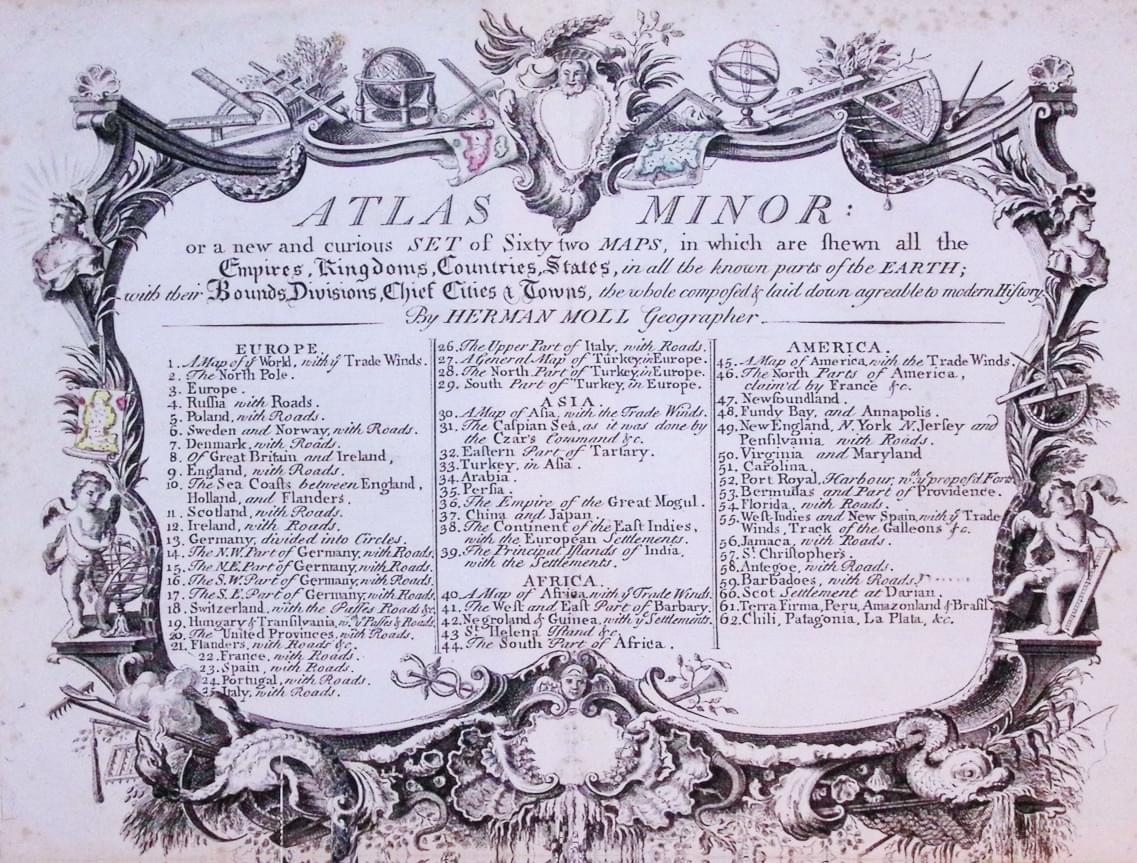 ATLAS MINOR:
or a new and curious SET of Sixty two MAPS, in which are ſhewn all the
Empires, Kingdoms, Countries, States, in all the known parts of the EARTH;
with their Bounds, Divisions, Chief Cities & Towns, the whole composed & laid down agreable to modern History.
By HERMAN MOLL Geographer.
EUROPE.
1. A Map of yͤ World, with yͤ Trade Winds.
2. The North Pole.
3. Europe.
4. Ruſſia with Roads.
5. Poland, with Roads.
6. Sweden and Norway, with Roads.
7. Denmark, with Roads.
8. Of Great Britain and Ireland,
9. England, with Roads.
10. The Sea Coasts between England,
Holland, and Flanders.
11. Scotland, with Roads.
12. Ireland, with Roads.
13. Germany, divided into Circles.
14. The N.W. Part of Germany, with Roads.
15. The N.E. Part of Germany, with Roads.
16. The S.W. Part of Germany, with Roads.
17. The S.E. Part of Germany, with Roads.
18. Switzerland, with the Paſſes Roads &c.
19. Hungary & Tranſilvania, wͭͪ yͤ Paſſes & Roads.
20. The United Provinces, with Roads.
21. Flanders, with Roads &c.
22. France, with Roads.
23. Spain, with Roads.
24. Portugal, with Roads.
25. Italy, with Roads.
26. The Upper Part of Italy, with Roads.
27. A General Map of Turkey, in Europe.
28. The North Part of Turkey, in Europe.
29. South Part of Turkey, in Europe.
ASIA.
30. A Map of Aſia, with the Trade Winds.
31. The Caſpian Sea, as it was done by
the Czar's Command &c.
32. Eaſtern Part of Tartary.
33. Turkey, in Aſia.
34. Arabia.
35. Perſia.
36. The Empire of the Great Mogul.
37. China and Japan.
38. The Continent of the East Indies,
with the European Settlements.
39. The Principal Iſlands of India,
with the Settlements.
AFRICA.
40. A Map of Africa, with yͤ Trade Winds.
41. The West and East Part of Barbary.
42. Negroland & Guinea, with yͤ Settlements.
43 Sͭ Helena Iſland &c.
44. The South Part of Africa.
AMERICA.
45. A Map of America, with the Trade Winds.
46. The North Parts of America,
claim'd by France &c.
47. Newfoundland.
48. Fundy Bay, and Annapolis.
49. New England, N. York N. Jerſey and
Penſilvania with Roads.
50. Virginia and Maryland
51. Carolina.
52. Port Royal, Harbour, wͭͪ yͤ propoſ'd Fort
53. Bermudas and Part of Providence.
54. Florida, with Roads.
55. West-Indies and New Spain, with yͤ Trade
Winds, Track of the Galleons &c.
56. Jamaca, with Roads.
57. Sͭ Chriſtophers.
58. Antegoe, with Roads.
59. Barbadoes, with Roads
60. Scot Settlement at Darian.
61. Terra Firma, Peru, Amazonland & Braſil
62. Chili, Patagonia, La Plata, &c.